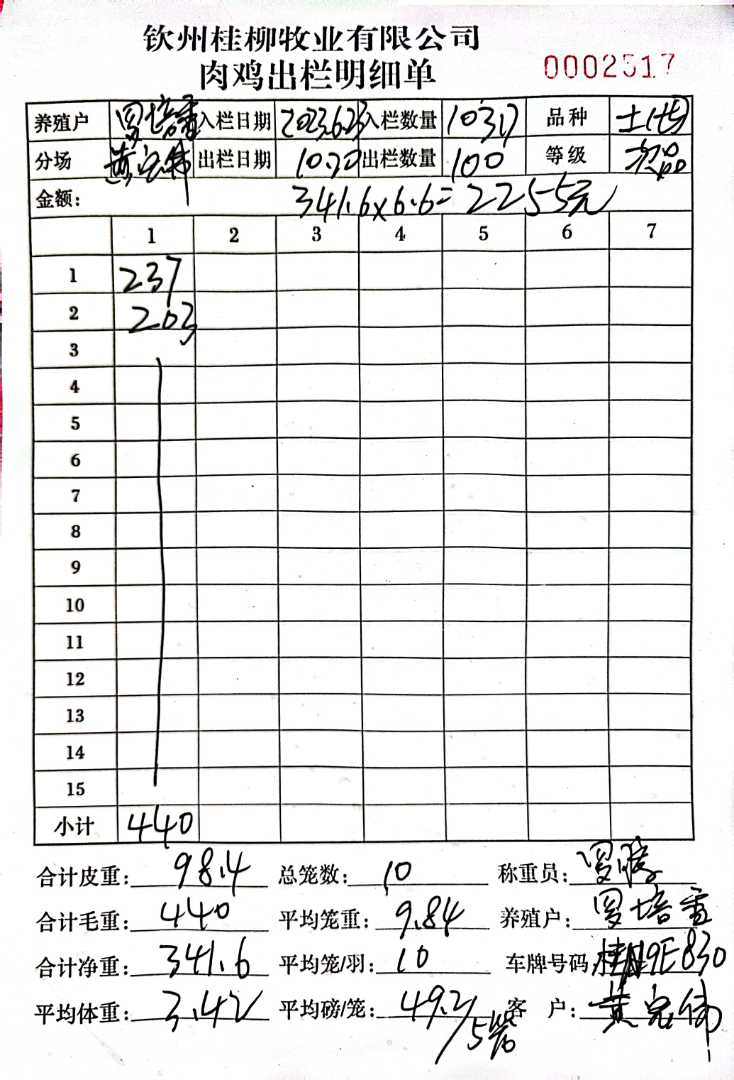 钦州桂柳牧业有限公司
肉鸡出栏明细单 0002517
养殖户 罗培重 入栏日期 2023.6.23 入栏数量 10317 品种 土(七)
分场 黄宏伟 出栏日期 10.20 出栏数量 100 等级 次品
金额: 341.6×6.6=2255元
1 2 3 4 5 6 7
1 237
2 203
3
4
5
6
7
8
9
10
11
12
13
14
15
小计 440
合计皮重: 98.4 总笼数: 10 称重员: 罗
合计毛重: 440 平均笼重: 9.84 养殖户: 罗培重
合计净重: 341.6 平均笼/羽: 10 车牌号码: 桂N9E830
平均体重: 3.42 平均磅/笼: 49.2/5笼 客 户: 黄宏伟